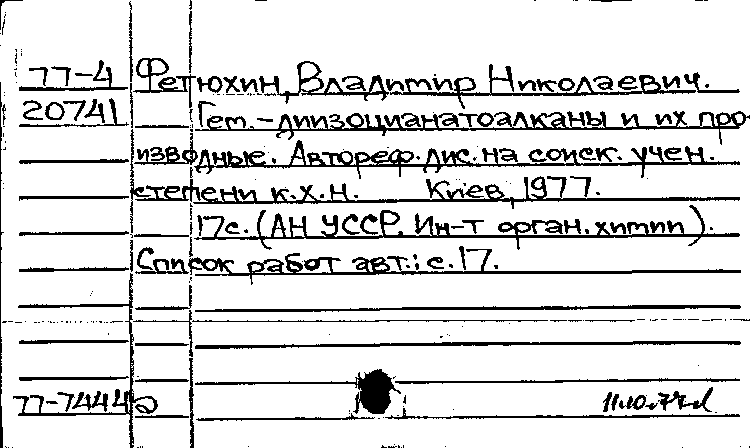 77-4 Фетюхин, Владимир Николаевич.
20741 Гем.-диизоцианатоалканы и их про-
изводные. Автореф. дис. на соиск. учен.
степени к.х.н. Киев, 1977.
17с. (АН УССР. Ин-т орган. химии).
Список работ авт.: с. 17.
77-7444а 11.10.77